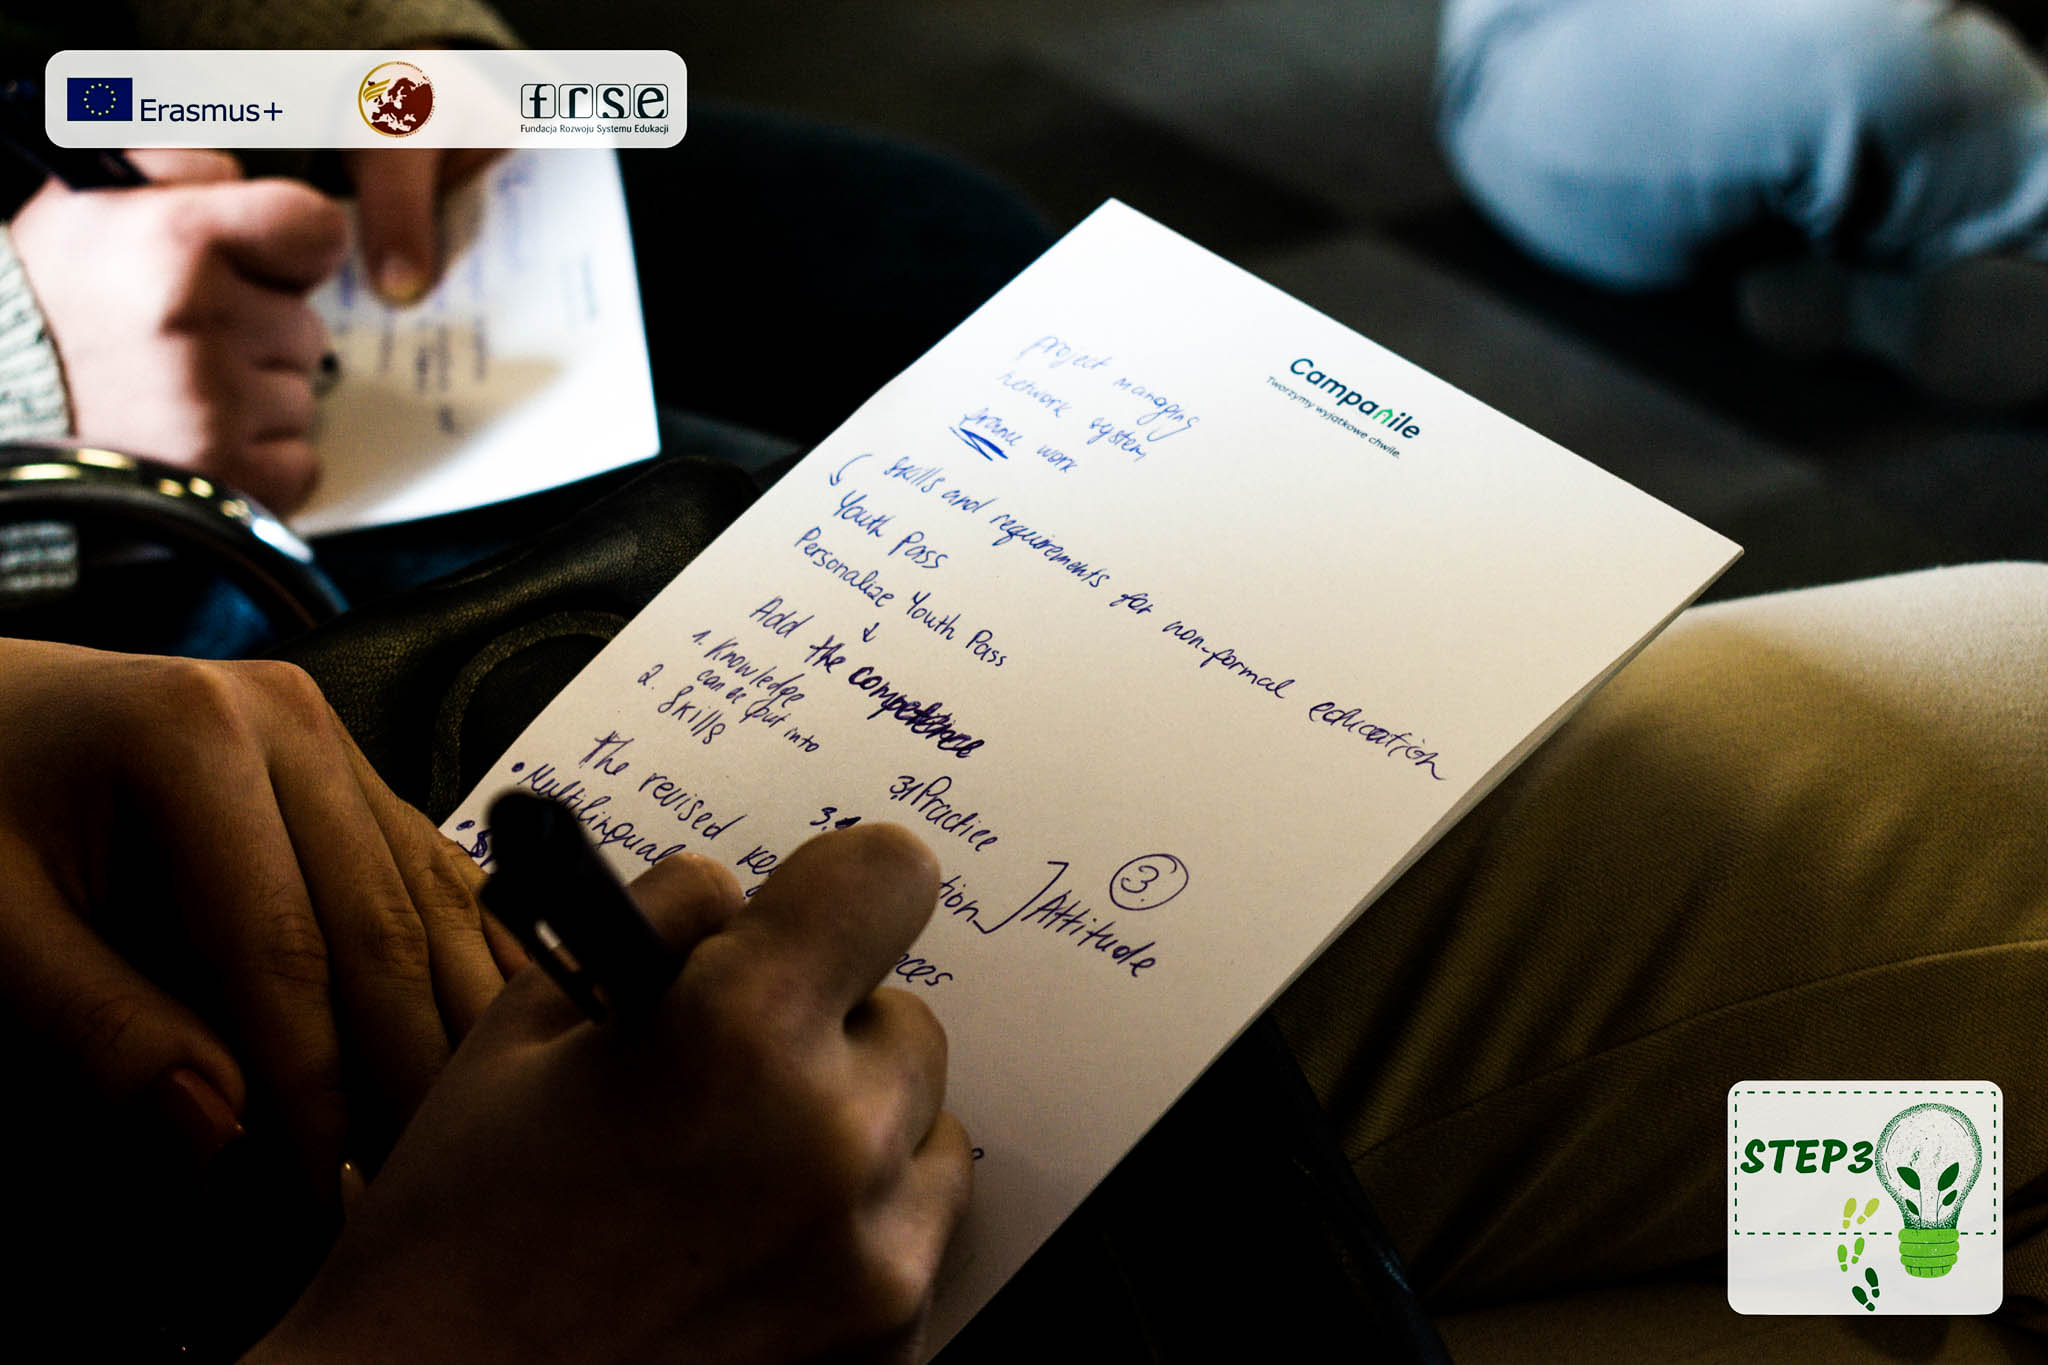 Erasmus+
frse
Fundacja Rozwoju Systemu Edukacji
Campanile
Tworzymy wyjątkowe chwile.
project managing
network system,
frame work
skills and requirements for non-formal education
Youth Pass
Personalize Youth Pass
Add the competence
1. Knowledge
can be put into
2. Skills
3,1 Practice
3.
] Attitude
3.
The revised key
• Multilingual
STEP3